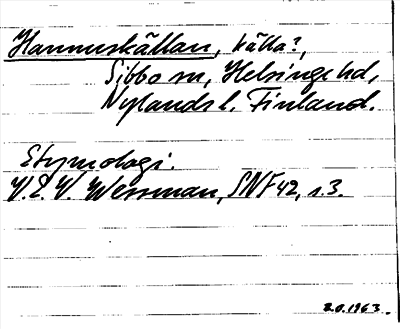 Hannuskällan, källa?,
Sibbo sn, Helsinge hd,
Nylands l. Finland.
Etymologi.
V.E.V. Wessman, SNF 42, s.3.
2.0.1963.